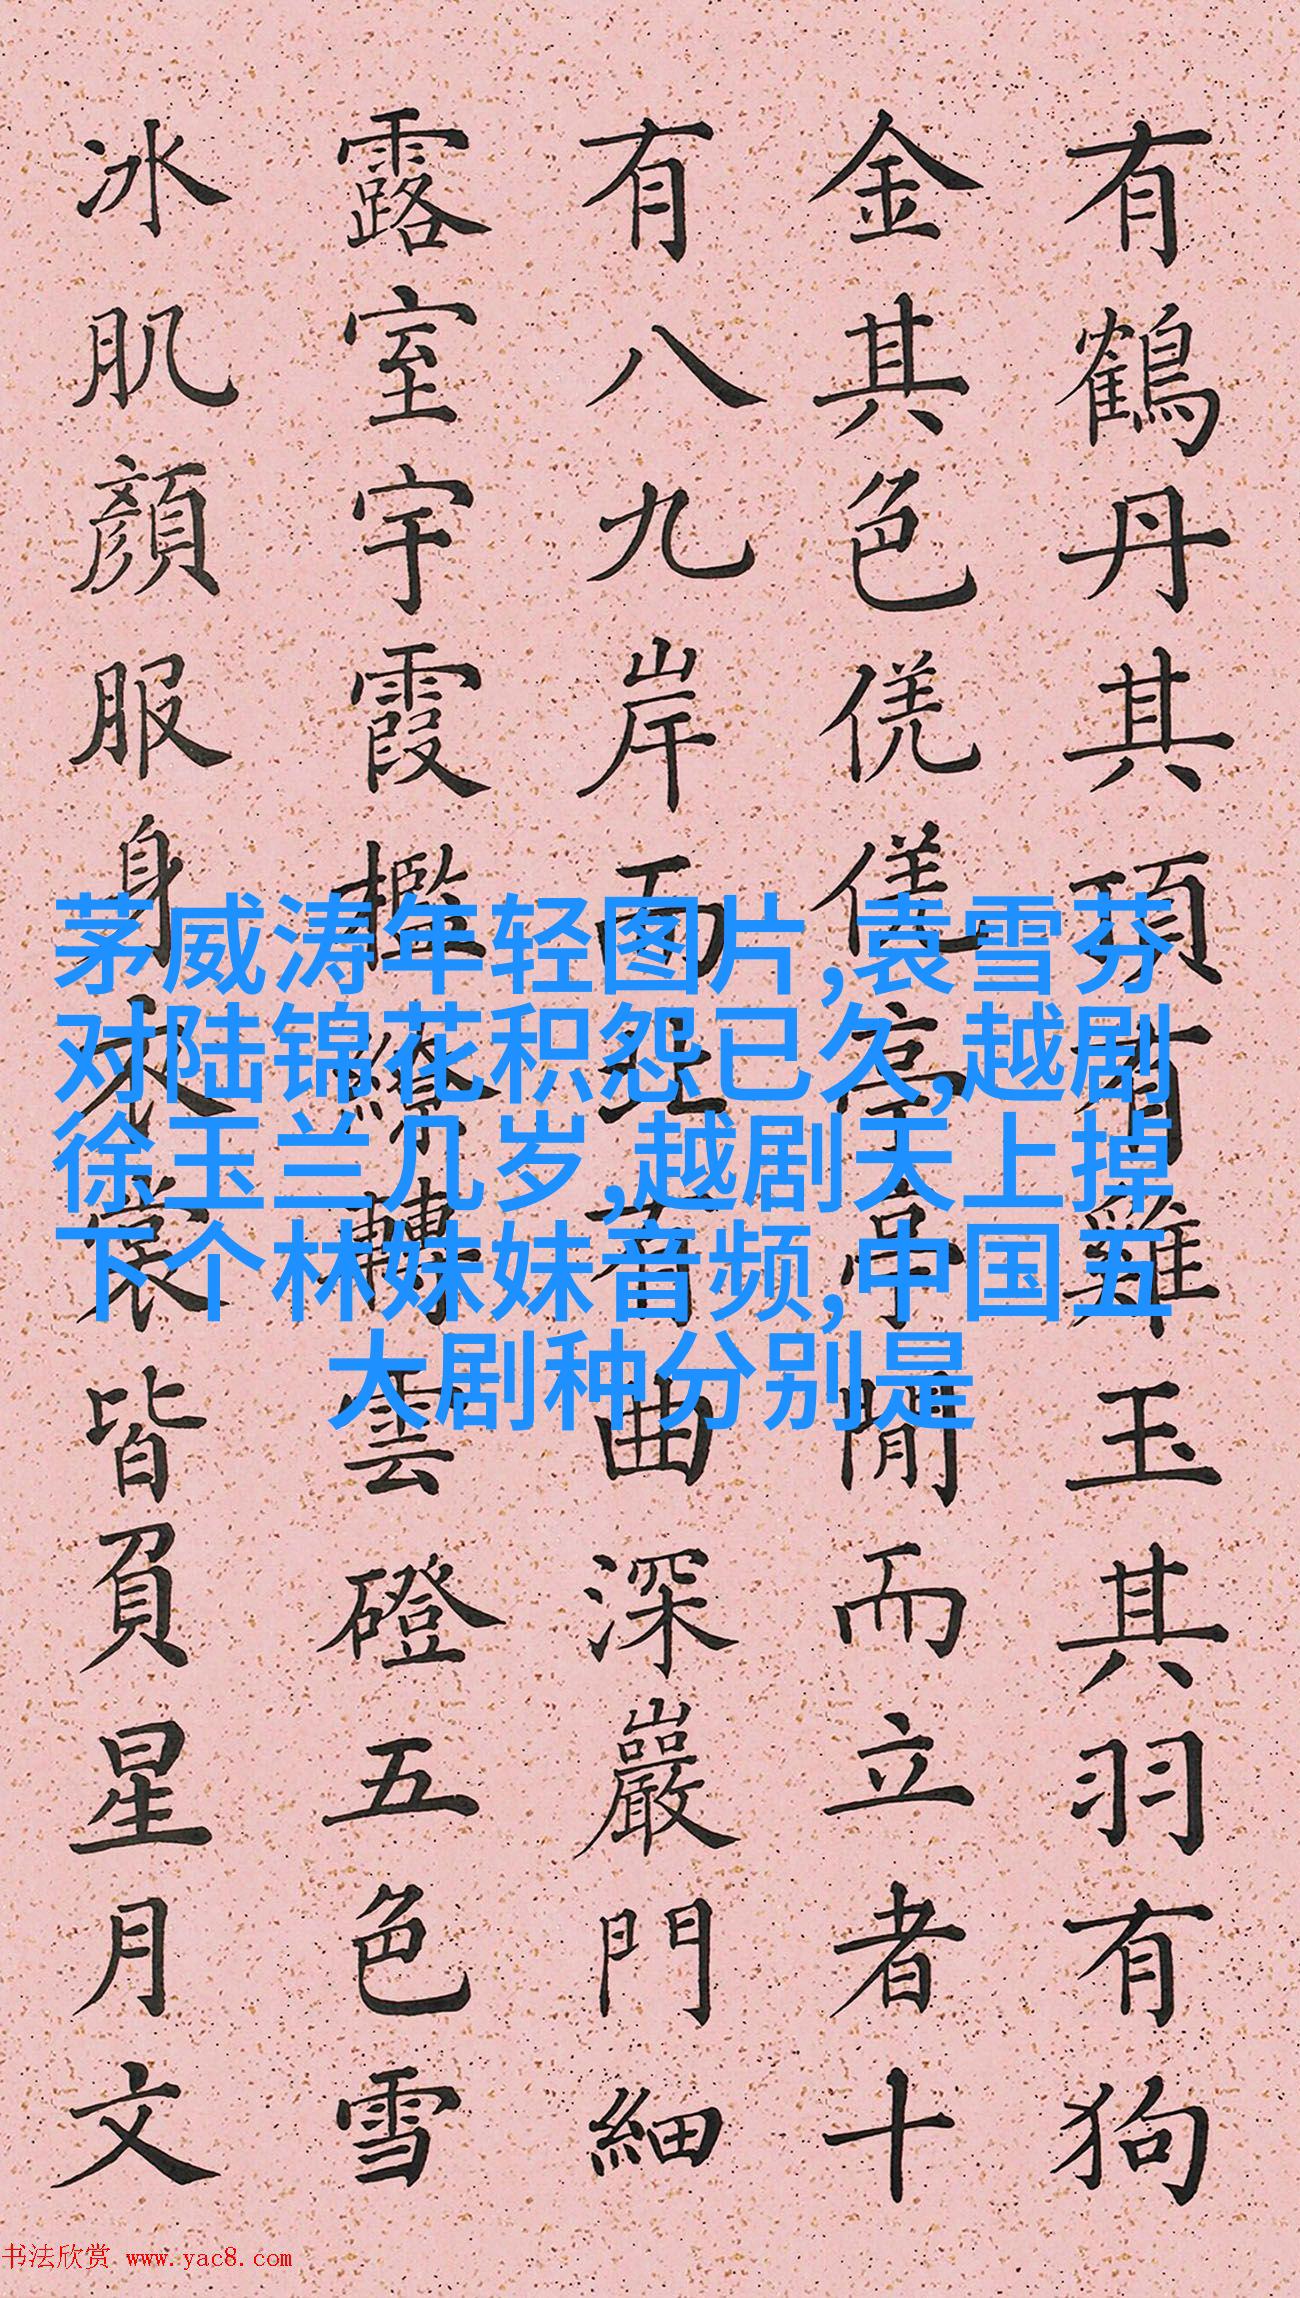 有鶴丹其頂有雞玉其羽有狗
金其色亭亭閒而立者十
有八九岸而曲深巖門細
露室宇霞檻繚轉雲磴五色雪
冰肌顏服身衣裳皆負星月文
茅威涛年轻图片,袁雪芬
对陆锦花积怨已久,越剧
徐玉兰几岁,越剧天上掉
下个林妹妹音频,中国五
大剧种分别是
书法欣赏 www.yac8.com